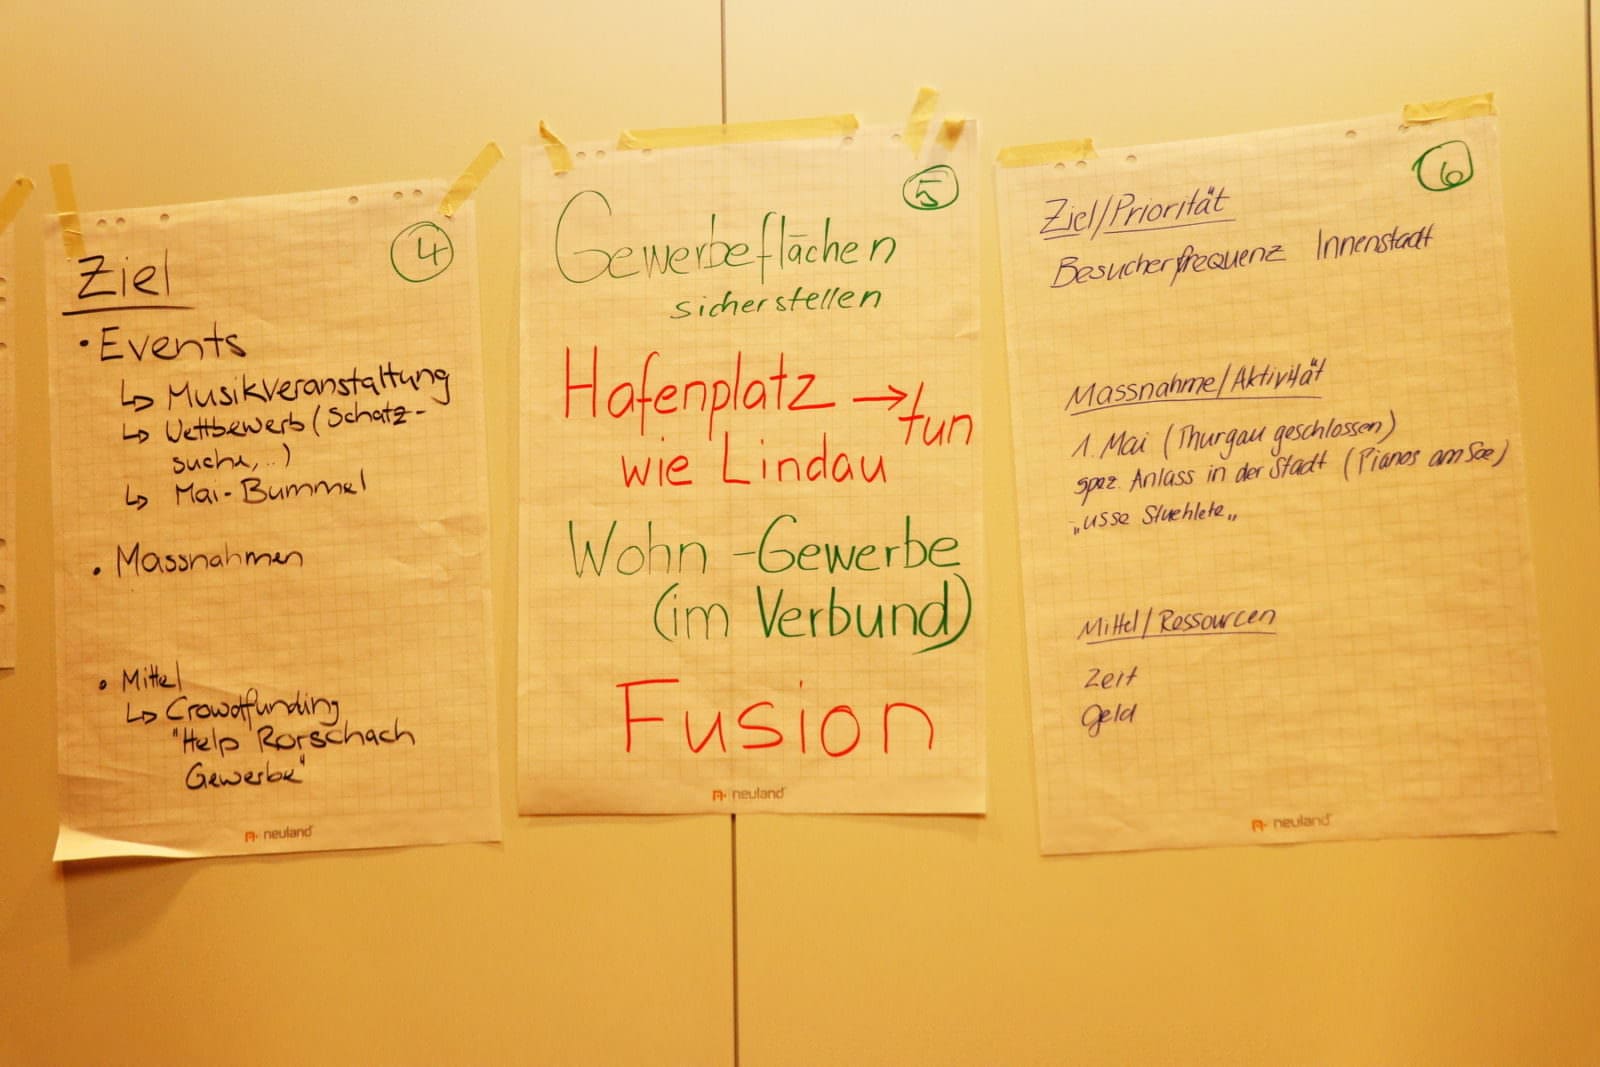 4
Ziel
• Events
↳ Musikveranstaltung
↳ Wettbewerb (Schatz-
suche,..)
↳ Mai-Bummel
• Massnahmen
• Mittel
↳ Crowdfunding
"Help Rorschach
Gewerbe"
neuland
5
Gewerbeflächen
sicherstellen
Hafenplatz → tun
wie Lindau
Wohn-Gewerbe
(im Verbund)
Fusion
neuland
6
Ziel/Priorität
Besucherfrequenz Innenstadt
Massnahme/Aktivität
1. Mai (Thurgau geschlossen)
spez. Anlass in der Stadt (Pianos am See)
„usse Stuehlete„
Mittel/Ressourcen
Zeit
Geld
neuland